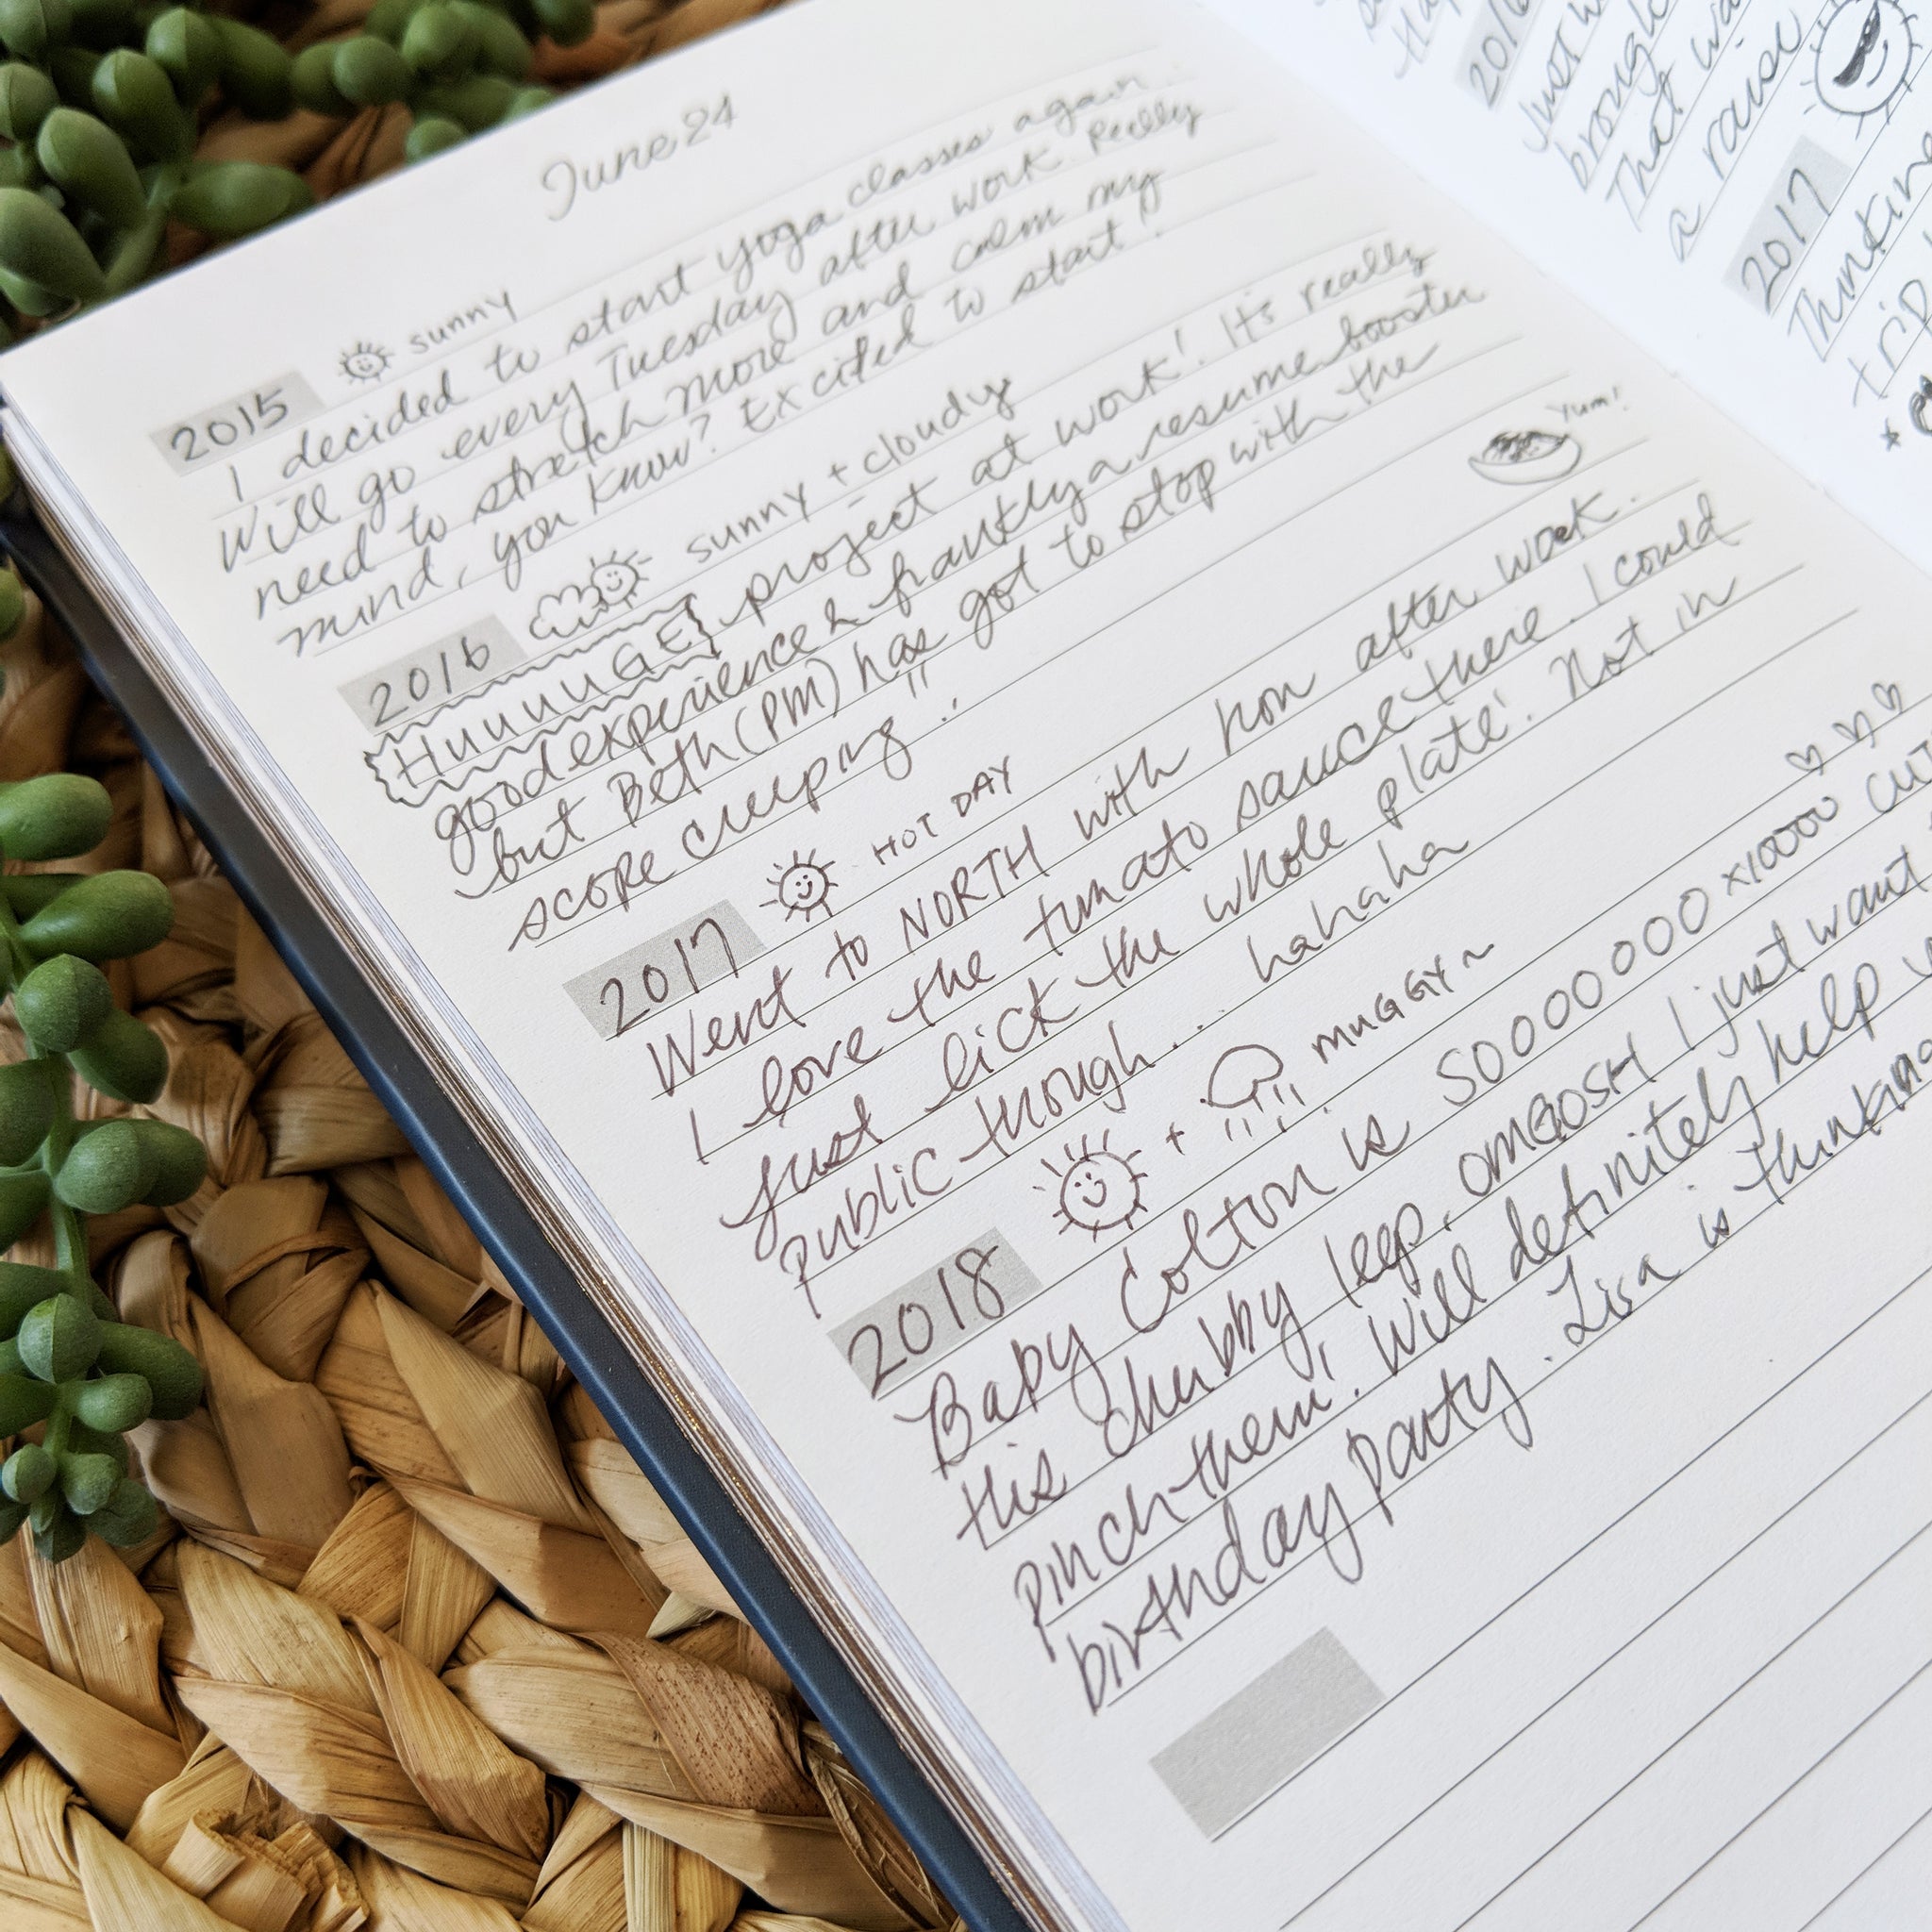 June 24
2015 sunny
I decided to start yoga classes again.
Will go every Tuesday after work. Really
need to stretch more and calm my
mind, you know? Excited to start!
2016 sunny + cloudy
HUUUUGE project at work! It's really
good experience & frankly a resume booster
but Beth (PM) has got to stop with the
scope creeping!!
Yum!
2017 HOT DAY
Went to NORTH with hon after work.
I love the tomato sauce there. I could
just lick the whole plate! Not in
public though... hahaha
2018 + MUGGY~
Baby Colton is SOOOOOOOO x10000 CUTE
His chubby legs, OMGOSH I just want
pinch them! Will definitely help
birthday party. Lisa is thinking
2016
Just
brought
That
a raise
2017
Thinking
trip